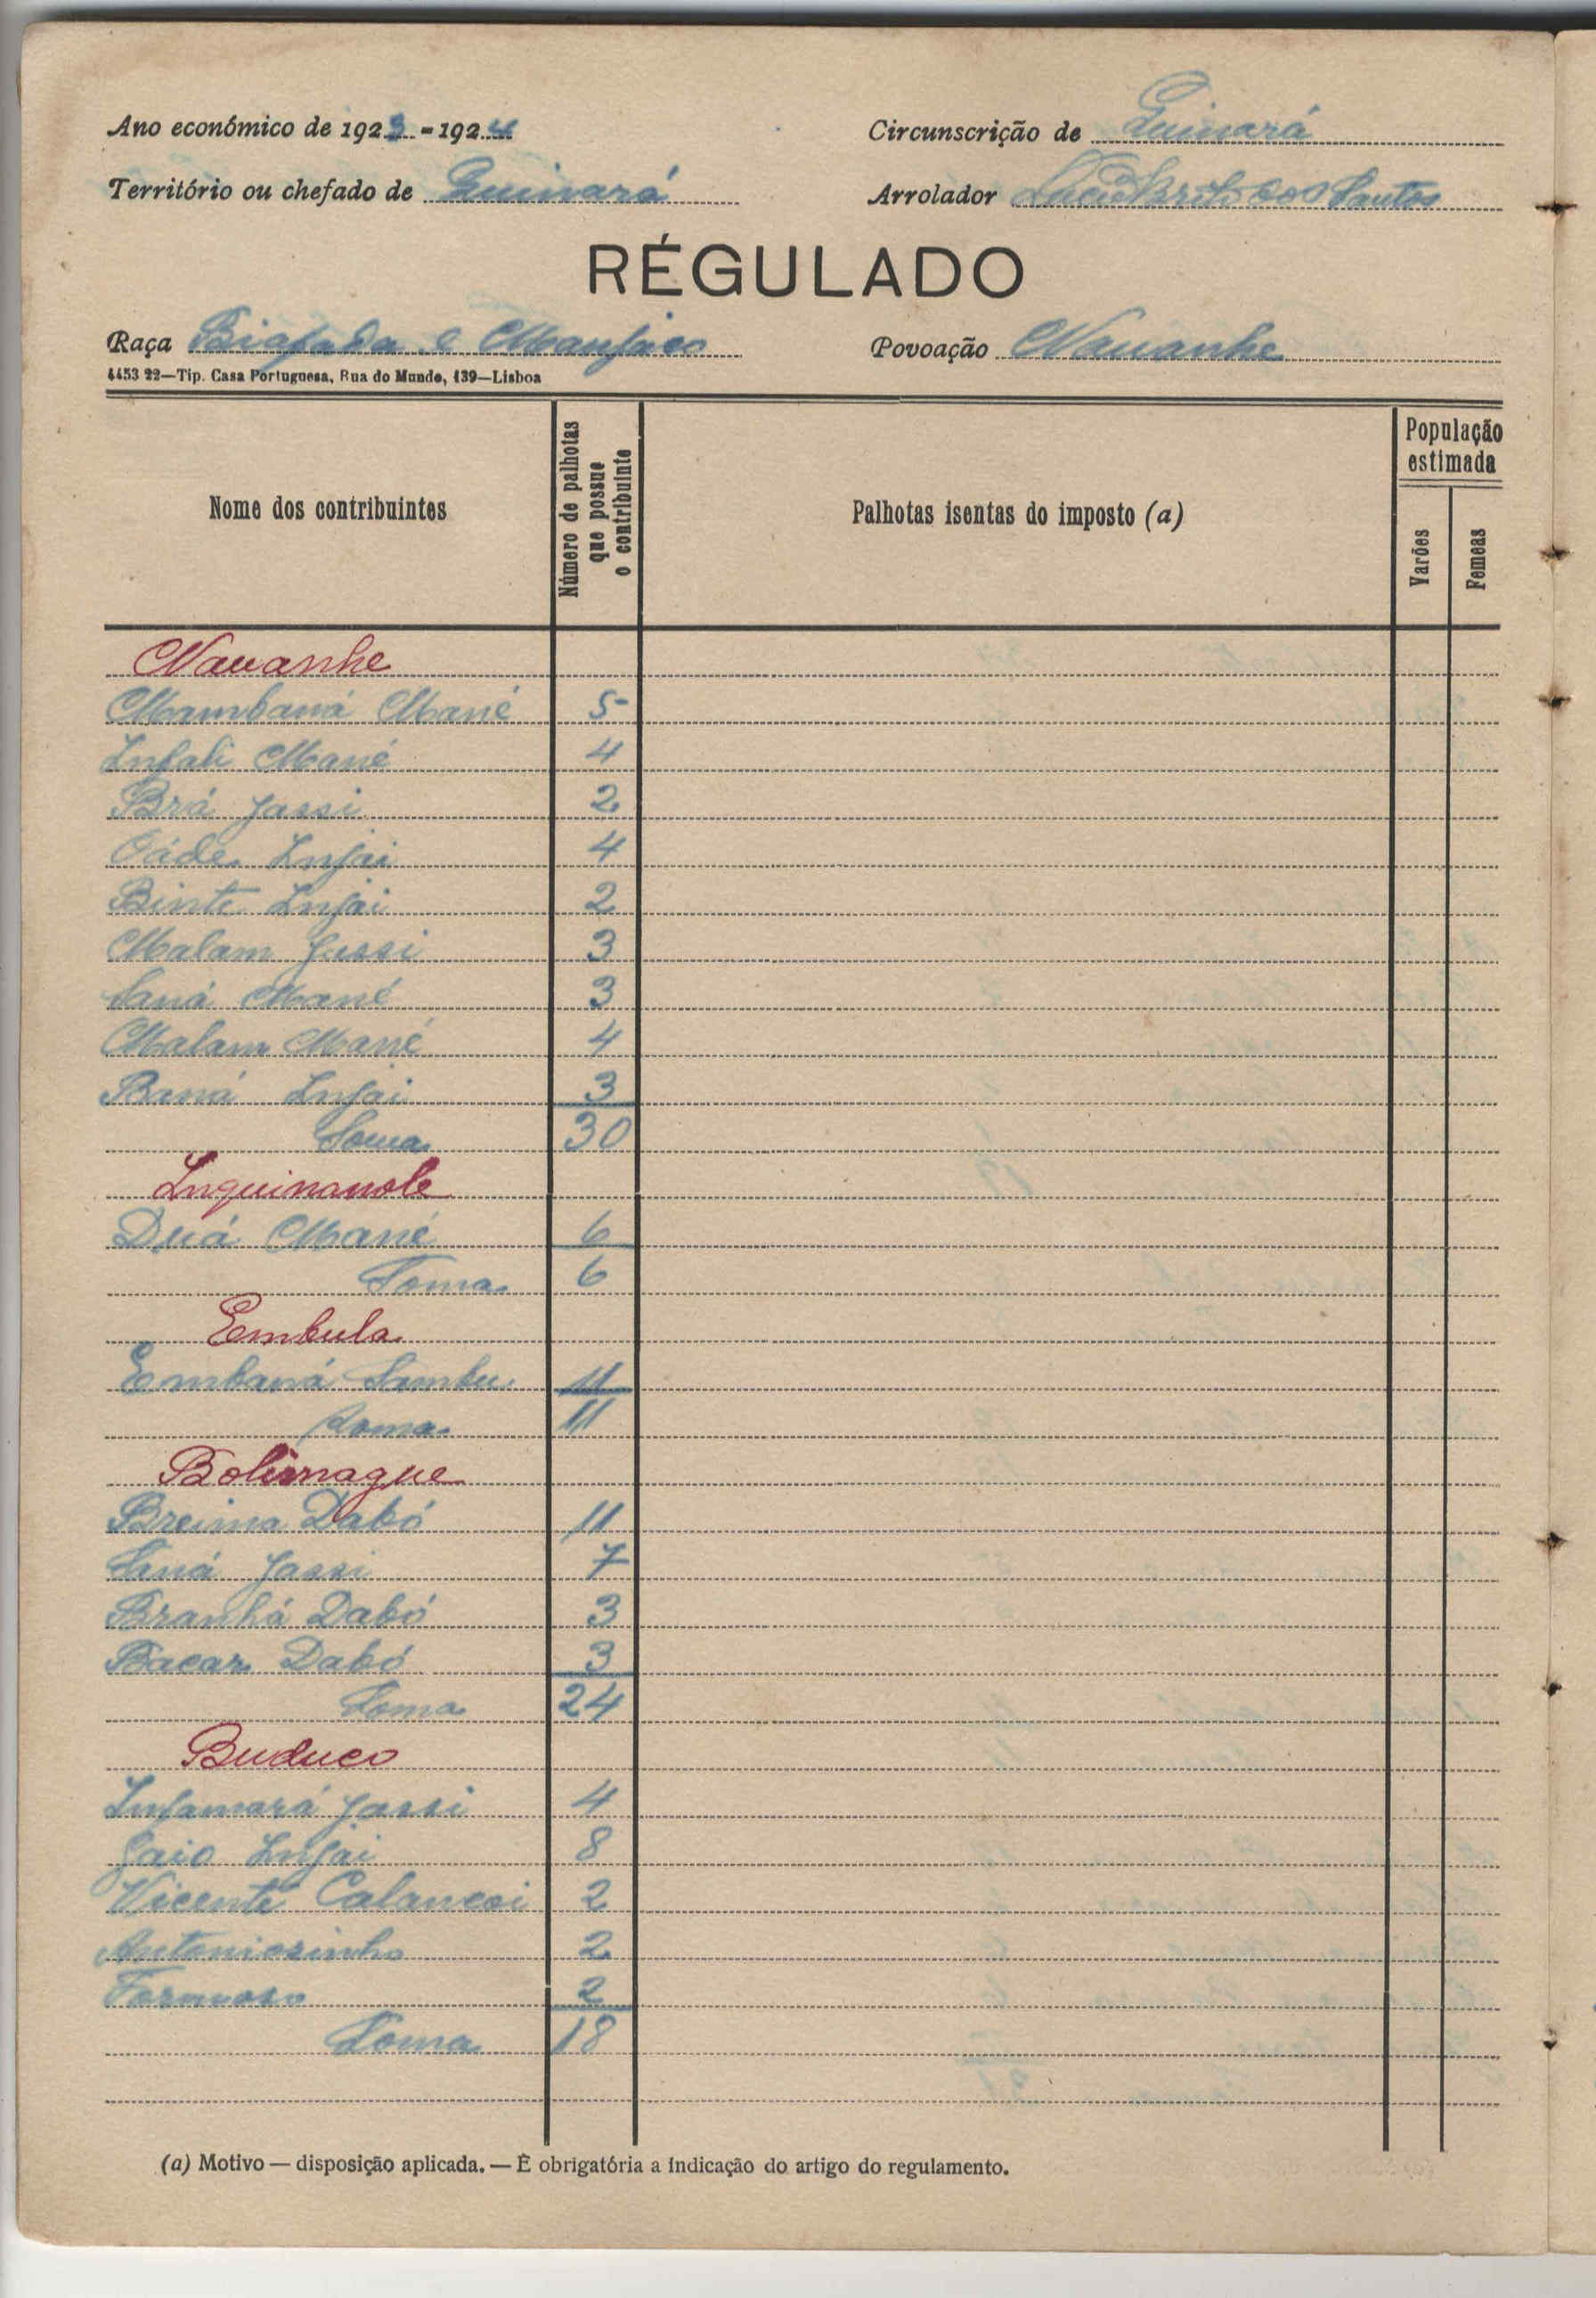 Ano económico de 1923-1924
Circunscrição de Quinará
Território ou chefado de Guinará
Arrolador Santos
RÉGULADO
Raça Biafada e Manjaco
Povoação Nauanhe
4453 22—Tip. Casa Portuguesa, Rua do Mundo, 139—Lisboa
Nome dos contribuintes
Número de palhotas que possue o contribuinte
Palhotas isentas do imposto (a)
População estimada
Varões
Femeas
Nauanhe
Mambaná Mané 5
Infali Mané 4
Brá Jassi 2
Injai 4
Binte Injai 2
Malam Jassi 3
Saná Mané 3
Malam Mané 4
Injai 3
Soma 30
Inquinanole
Duá Mané 6
Soma 6
Embula
Embaná Sambu 11
Soma 11
Bolimague
Breima Dabó 11
Saná Jassi 7
Branhá Dabó 3
Bacar Dabó 3
Soma 24
Buduco
Infamará Jassi 4
Gaio Injai 8
Vicente 2
Antoniosinho 2
Formoso 2
Soma 18
(a) Motivo — disposição aplicada. — É obrigatória a indicação do artigo do regulamento.